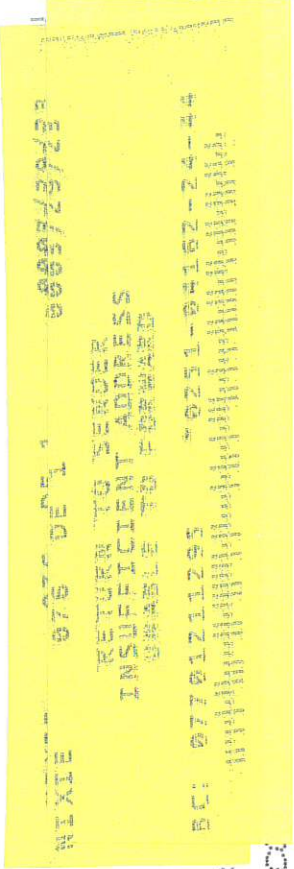 NIXIE 076 DE 1 0003/29/23
RETURN TO SENDER
INSUFFICIENT ADDRESS
UNABLE TO FORWARD
BC: 07701211299 *0231-04162-24-44